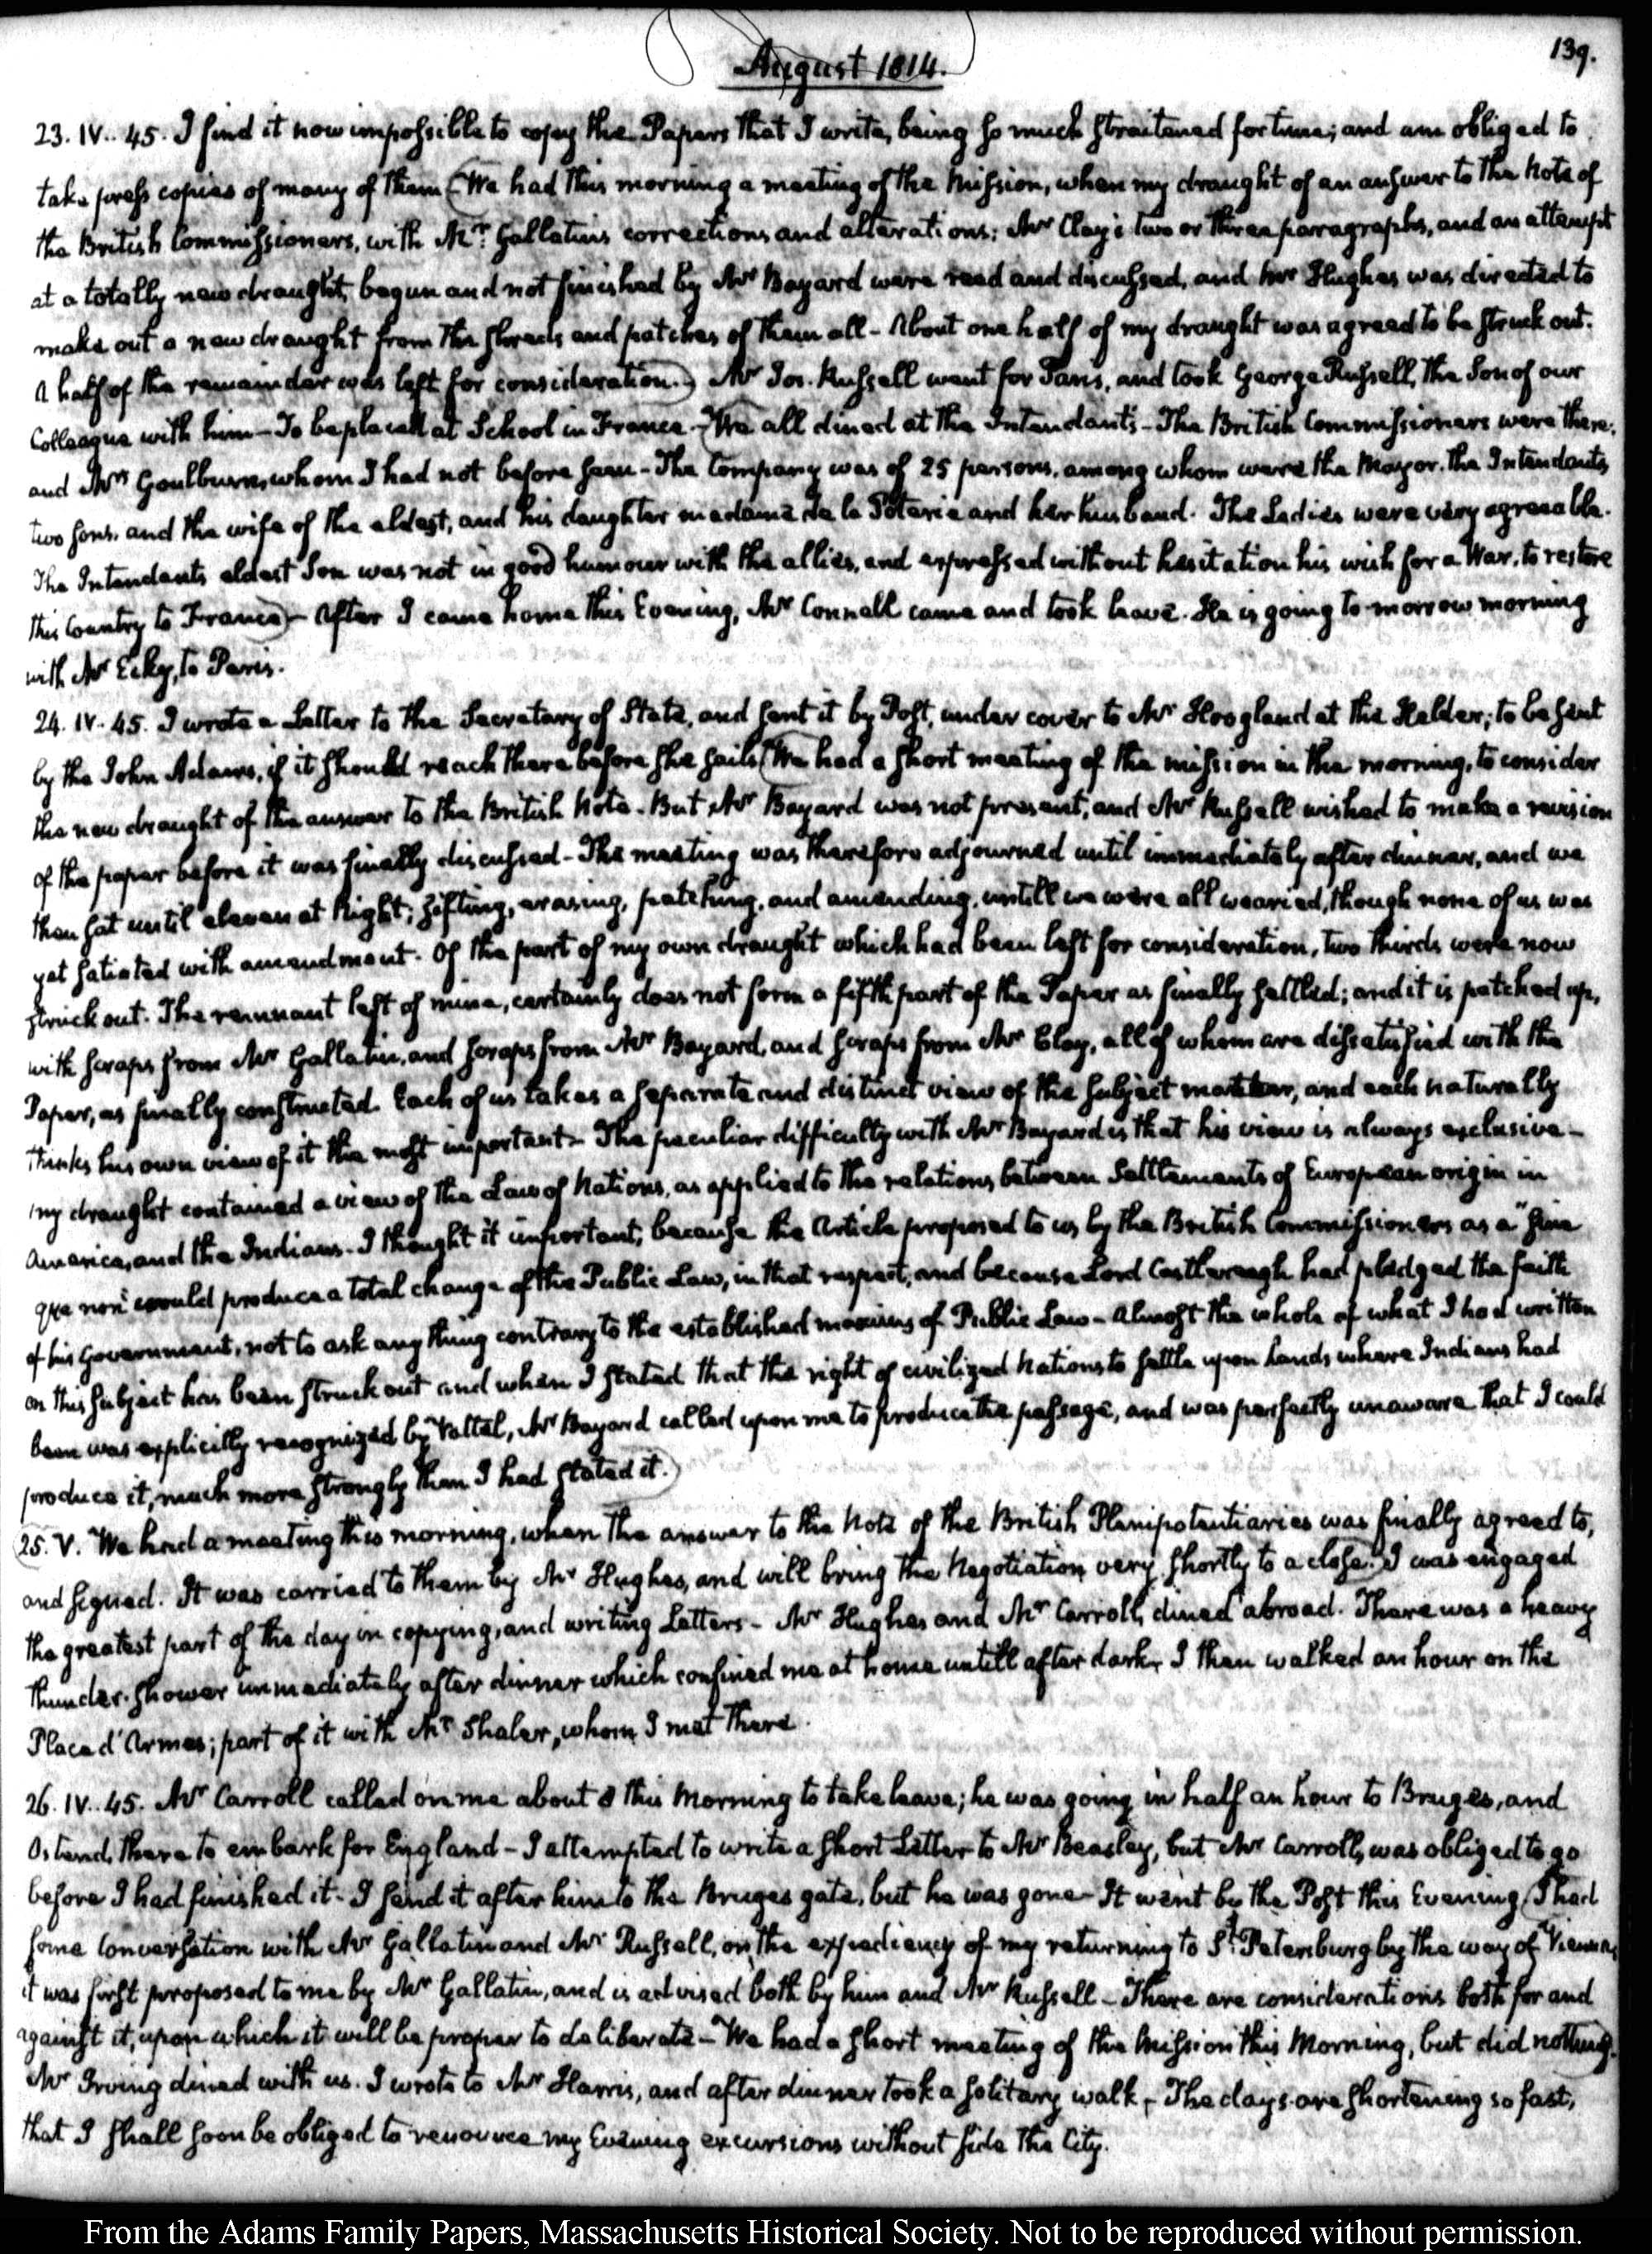 139.
August 1814.
23. IV.. 45. I find it now impossible to copy the Papers that I write, being so much straitened for time; and am obliged to
take press copies of many of them (We had this morning a meeting of the Mission, when my draught of an answer to the Note of
the British Commissioners, with Mr. Gallatin's corrections and alterations; Mr Clay's two or three paragraphs, and an attempt
at a totally new draught, begun and not finished by Mr Bayard were read and discussed, and Mr Hughes was directed to
make out a new draught from the shreds and patches of them all - About one half of my draught was agreed to be struck out.
A half of the remainder was left for consideration.) Mr Jos. Russell went for Paris, and took George Russell, the Son of our
Colleague with him - To be placed at School in France - (We all dined at the Intendant's - The British Commissioners were there;
and Mrs Goulburn, whom I had not before seen - The Company was of 25 persons, among whom were the Mayor, the Intendants
two sons, and the wife of the eldest, and his daughter madame de la Poterie and her husband. The Ladies were very agreeable.
The Intendants eldest Son was not in good humour with the allies, and expressed without hesitation his wish for a War, to restore
this Country to France) - After I came home this Evening, Mr Connell came and took leave. He is going to-morrow morning
with Mr Ecky, to Paris.
24. IV. 45. I wrote a Letter to the Secretary of State, and sent it by Post, under cover to Mr Hoogland at the Helder; to be sent
by the John Adams, if it should reach there before she sails (We had a short meeting of the mission in the morning, to consider
the new draught of the answer to the British Note. But Mr Bayard was not present, and Mr Russell wished to make a revision
of the paper before it was finally discussed - The meeting was therefore adjourned until immediately after dinner, and we
then sat until eleven at Night; sifting, erasing, patching, and amending, untill we were all wearied, though none of us was
yet satiated with amendment. Of the part of my own draught which had been left for consideration, two thirds were now
struck out. The remnant left of mine, certainly does not form a fifth part of the Paper as finally settled; and it is patched up,
with scraps from Mr Gallatin, and scraps from Mr Bayard, and scraps from Mr Clay, all of whom are dissatisfied with the
Paper, as finally constructed. Each of us takes a separate and distinct view of the subject matter, and each naturally
thinks his own view of it the most important - The peculiar difficulty with Mr Bayard is that his view is always exclusive -
my draught contained a view of the Law of Nations, as applied to the relations between Settlements of European origin in
America, and the Indians - I thought it important, because the Article proposed to us by the British Commissioners as a "sine
qua non" would produce a total change of the Public Law, in that respect, and because Lord Castlereagh had pledged the faith
of his Government, not to ask any thing contrary to the established maxims of Public Law - Almost the whole of what I had written
on this subject has been struck out and when I stated that the right of civilized Nations to settle upon Lands where Indians had
been was explicitly recognized by Vattel, Mr Bayard called upon me to produce the passage, and was perfectly unaware that I could
produce it, much more strongly than I had stated it.)
(25. V. We had a meeting this morning, when the answer to the Note of the British Plenipotentiaries was finally agreed to,
and signed. It was carried to them by Mr Hughes, and will bring the Negotiation very shortly to a close.) I was engaged
the greatest part of the day in copying, and writing Letters - Mr Hughes and Mr Carroll, dined abroad. There was a heavy
thunder-shower immediately after dinner which confined me at home untill after dark, I then walked an hour on the
Place d'Armes; part of it with Mr Shaler, whom I met there.
26. IV.. 45. Mr Carroll called on me about 8 this Morning to take leave; he was going in half an hour to Bruges, and
Ostend, there to embark for England - I attempted to write a short Letter to Mr Beasley, but Mr Carroll, was obliged to go
before I had finished it - I send it after him to the Bruges gate, but he was gone - It went by the Post this Evening (I had
some Conversation with Mr Gallatin and Mr Russell, on the expediency of my returning to St Petersburg by the way of Vienna,
it was first proposed to me by Mr Gallatin, and is advised both by him and Mr Russell - There are considerations both for and
against it, upon which it will be proper to deliberate - We had a short meeting of the Mission this Morning, but did nothing.)
Mr Irving dined with us. I wrote to Mr Harris, and after dinner took a solitary walk - The days are shortening so fast,
that I shall soon be obliged to renounce my Evening excursions without side the City.
From the Adams Family Papers, Massachusetts Historical Society. Not to be reproduced without permission.